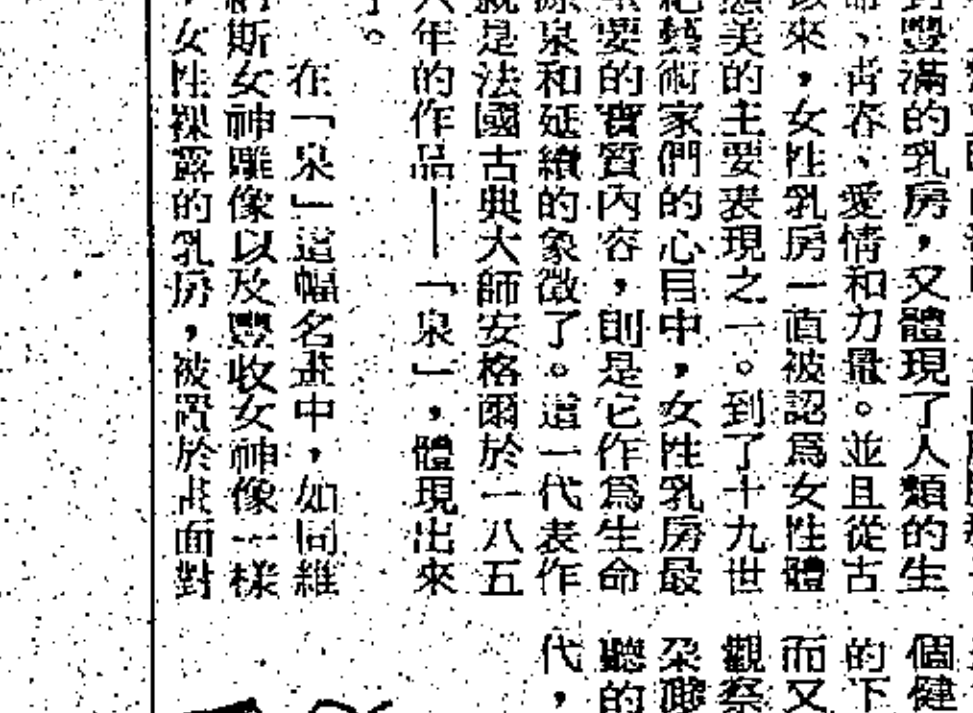 對豐滿的乳房，又體現了人類的生
命、青春、愛情和力量。並且從古
以來，女性乳房一直被認爲女性體
態美的主要表現之一。到了十九世
紀藝術家們的心目中，女性乳房最
重要的實質內容，則是它作爲生命
源泉和延續的象徵了。這一代表作
就是法國古典大師安格爾於一八五
六年的作品——「泉」，體現出來
了。
在「泉」這幅名畫中，如同維
納斯女神雕像以及豐收女神像一樣
，女性裸露的乳房，被置於畫面對
個健
的下
而又
觀察
朶
聽的
代，